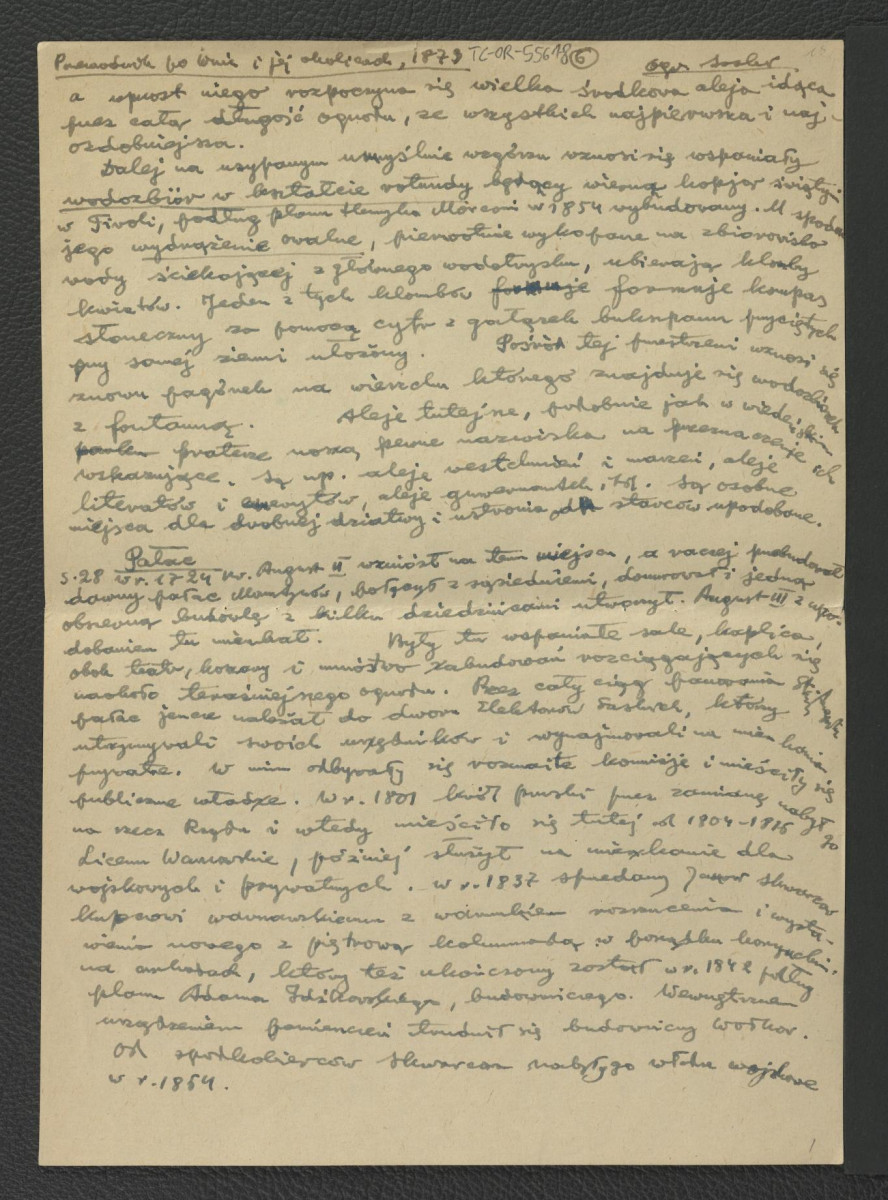 Przewodnik po Wwie i jej okolicach, 1873 TC-OR-55618 6 ogr. Saski
a wprost niego rozpoczyna się wielka środkowa aleja idąca
przez całą długość ogrodu, ze wszystkich najpierwsza i naj-
ozdobniejsza.
Dalej na usypanym umyślnie wzgórzu wznosi się wspaniały
wodozbiór w kształcie rotundy będący wierną kopją świątyni
w Tivoli, podług planu Henryka Marconi w 1854 wybudowany. U spodu
jego wydrążenie owalne, pierwotnie wykopane na zbiorowisko
wody ściekającej z głównego wodotrysku, ubierają klomby
kwiatów. Jeden z tych klombów formuje formuje kompas
słoneczny za pomocą cyfr z gałązek bukszpanu przyciętych
przy samej ziemi ułożony. Pośród tej przestrzeni wznosi się
znowu pagórek na wierzchu którego znajduje się wodozbiorek
z fontanną. Aleje tutejsze, podobnie jak w wiedeńskim
parku praterze noszą pewne nazwiska na przeznaczenie ich
wskazujące. Są np. aleje westchnień i marzeń, aleje
literatów i emerytów, aleje guwernantek itd. Są osobne
miejsca dla drobnej dziatwy i ustronia dla starców upodobane.
Pałac
s. 28 w r. 1724 kr. August II wzniósł na tem miejscu, a raczej przebudował
dawny pałac Morsztynów, połączył z sąsiedniemi, domurował i jedną
obszerną budowlę z kilku dziedzińcami utworzył. August III z upo-
dobaniem tu mieszkał. Były tu wspaniałe sale, kaplica,
obok teatr, koszary i mnóstwo zabudowań rozciągających się
naokoło teraźniejszego ogrodu. Przez cały ciąg panowania St. Augusta
pałac jeszcze należał do dworu Elektorów Saskich, którzy
utrzymywali swoich urzędników i wynajmowali na mieszkania
prywatne. W nim odbywały się rozmaite komisje i mieściły się
publiczne władze. W r. 1801 król pruski przez zamianę nabył go
na rzecz Rządu i wtedy mieściło się tutej od 1804-1816
Liceum Warszawskie, później służył na mieszkanie dla
wojskowych i prywatnych. w r. 1837 sprzedany Janowi Skwarcow
kupcowi warszawskiemu z warunkiem rozrzucenia i wysta-
wienia nowego z piętrową kolumnadą w porządku korynckim
na arkadach, który też ukończony został w r. 1842 podług
planu Adama Idźkowskiego, budowniczego. Wewnętrznem
urządzeniem pomieszczeń trudnił się budowniczy
Od spadkobierców Skwarcowa nabył go władze wojskowe
w r. 1864.
1